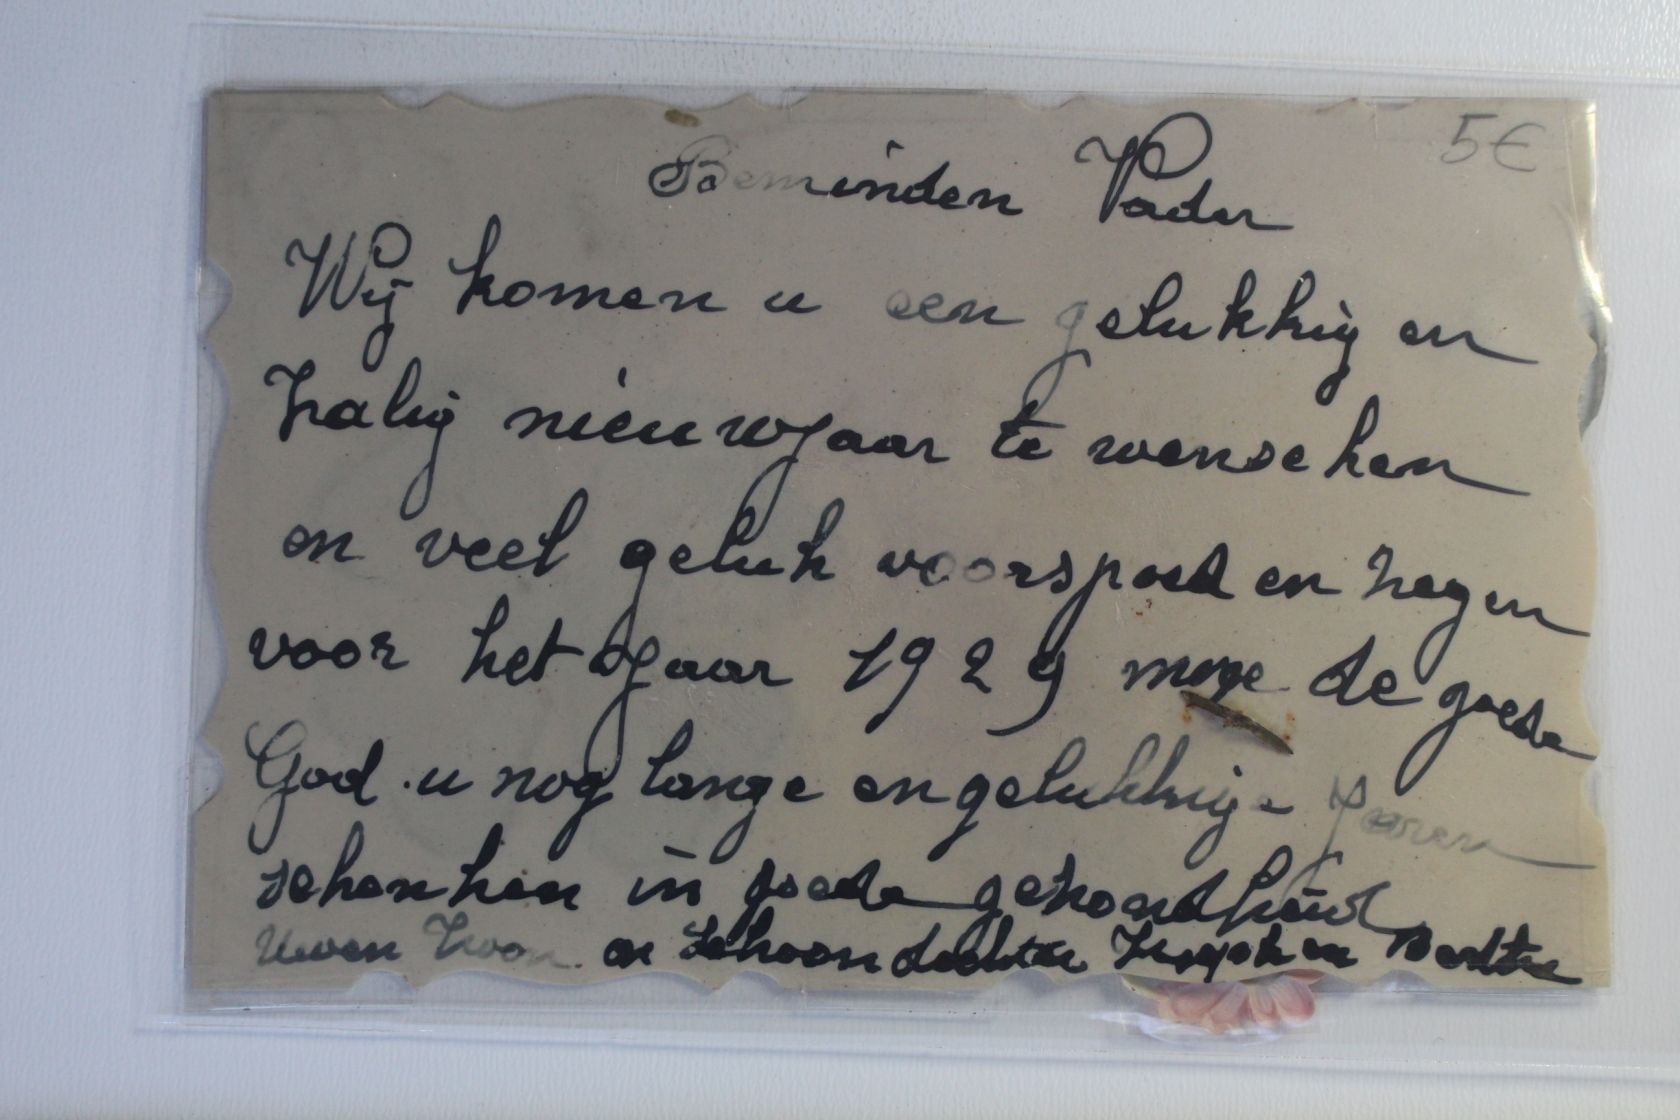 5€
Beminden Vader
Wij komen u een gelukkig en
Zalig nieuwjaar te wenschen
en veel geluk voorspoed en zegen
voor het Jaar 1929 moge de goede
God u nog lange en gelukkige Jaren
schenken in goede gezondheid
Uwen Zoon en Schoondochter en